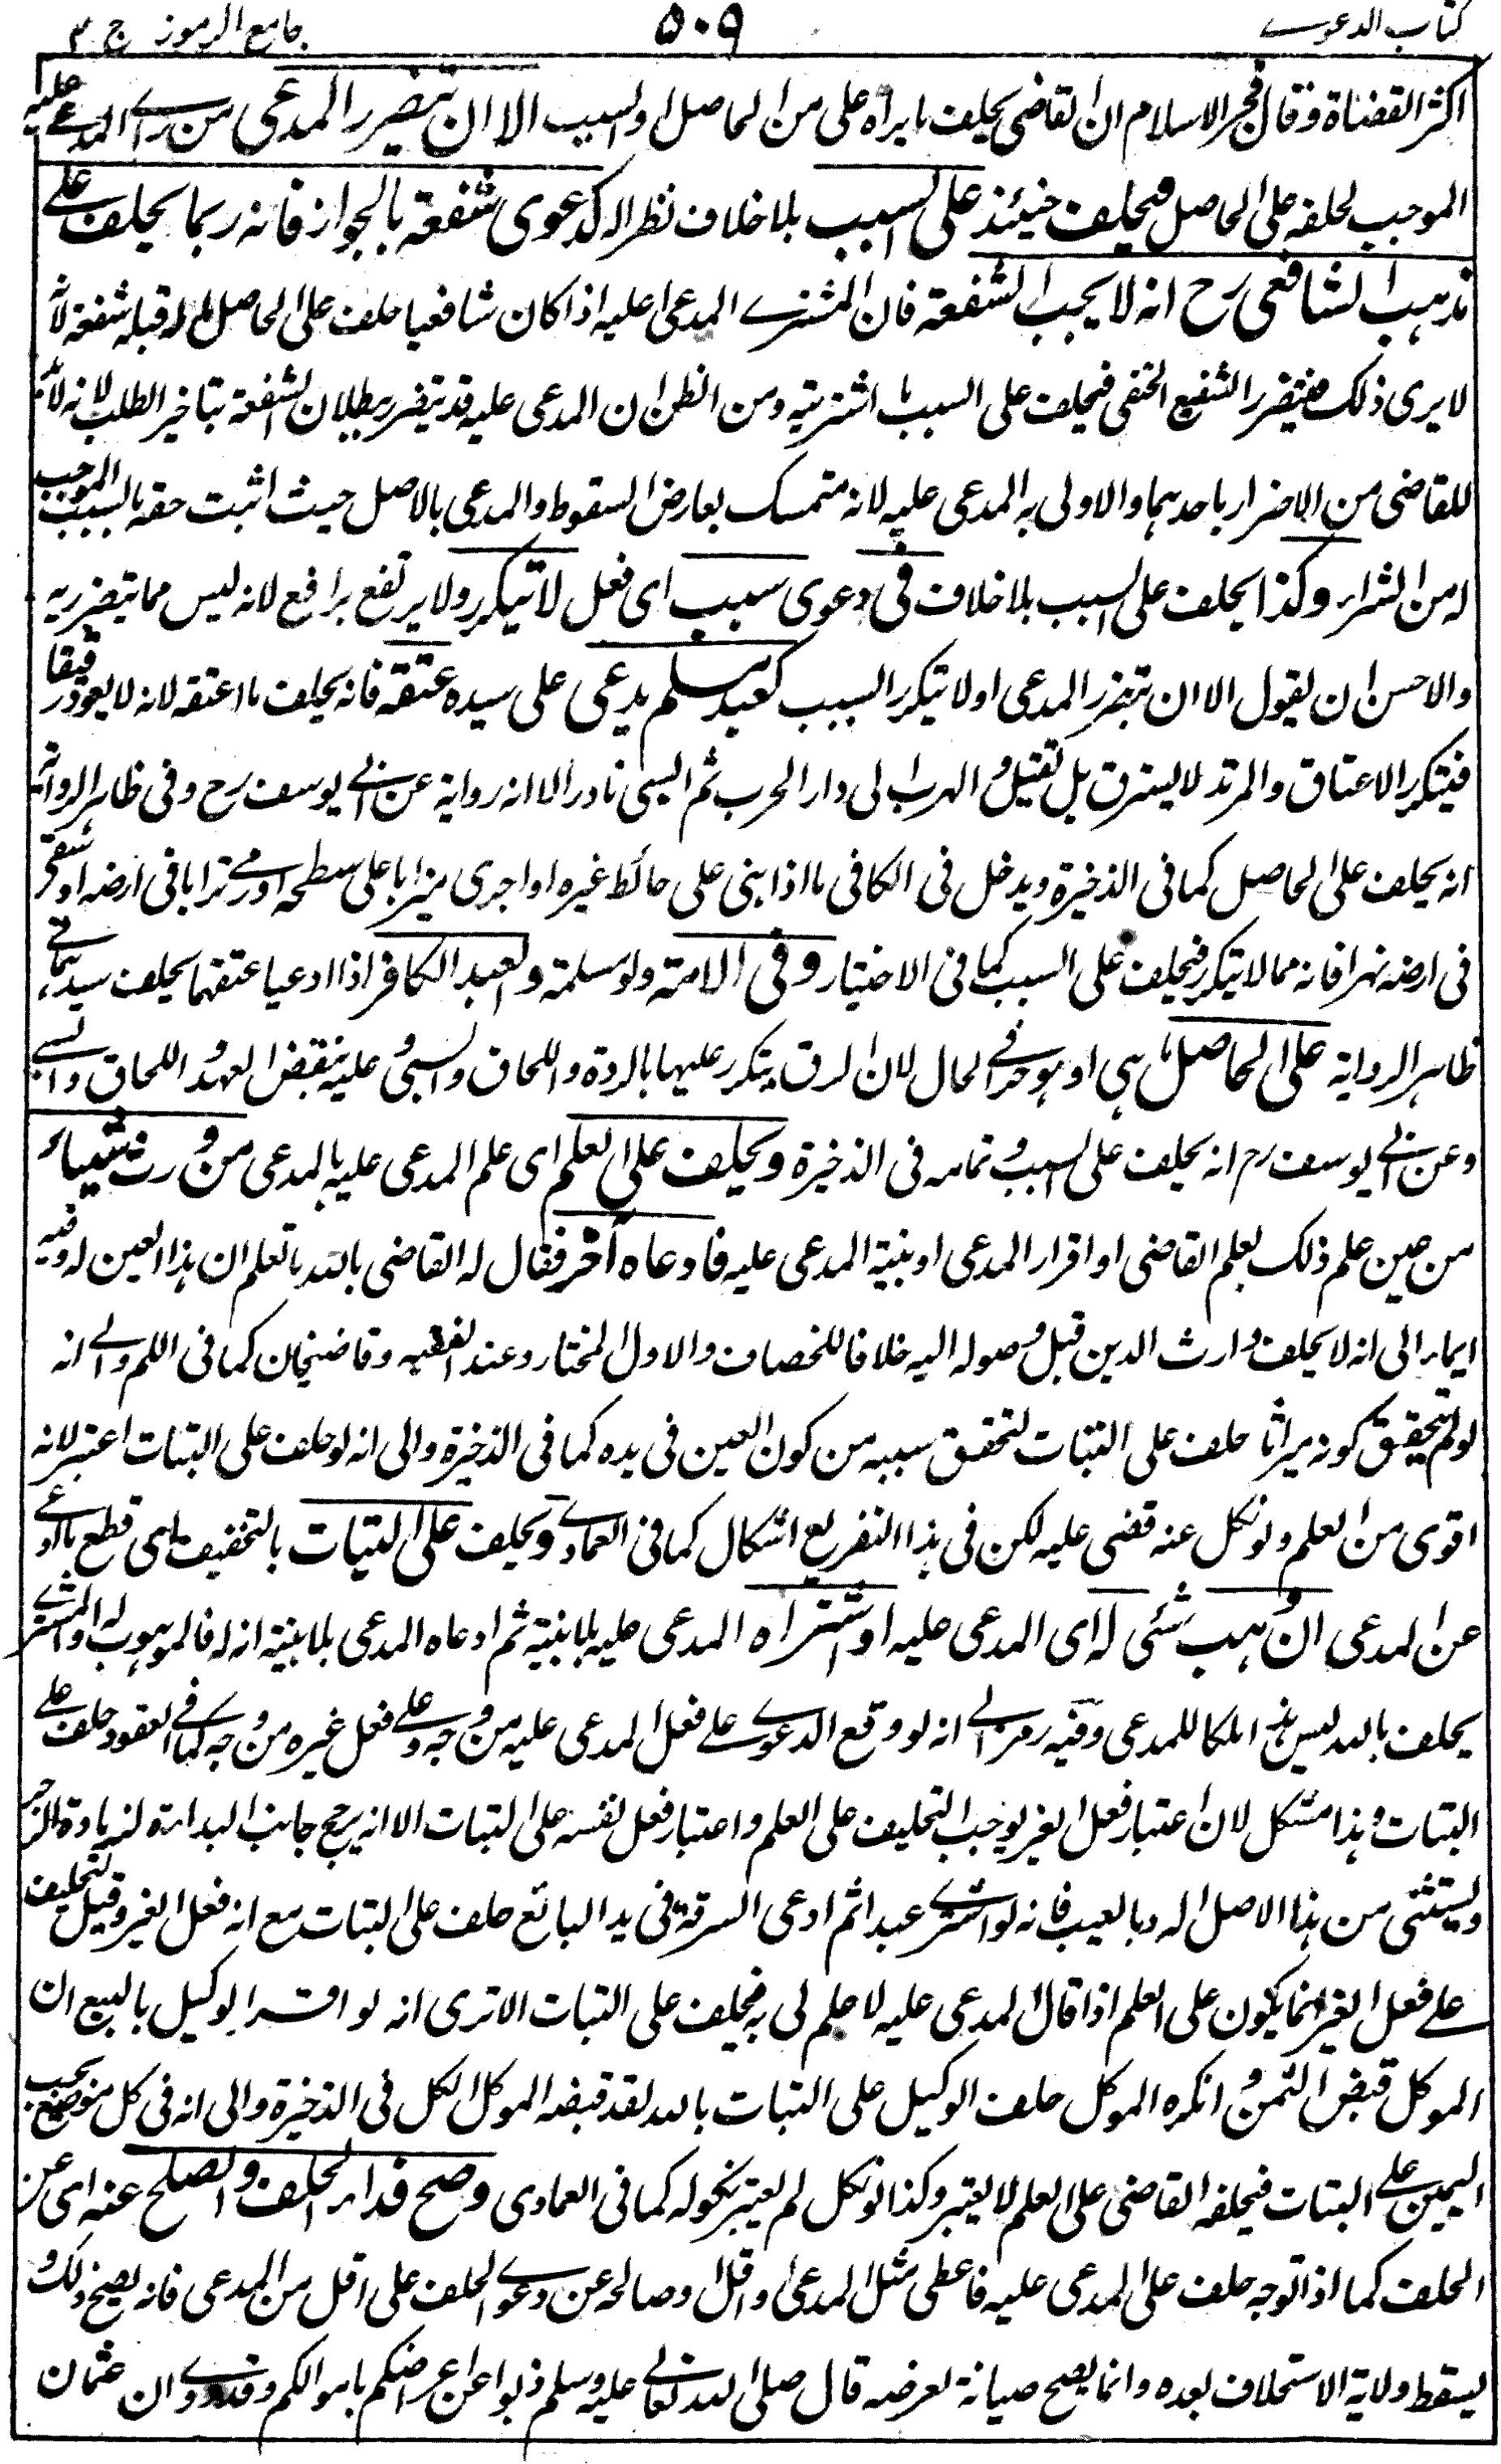 كتاب الدعوے ٥٠٩ جامع الرموز ج ٢
اكثر القضاة وقال فخر الاسلام ان القاضى يحلف ما يراه على من الحاصل او السبب الا ان يتضرر المدعى من راے المدعے عليه
الموجب لحلفه على الحاصل فيحلف حينئذ على السبب بلا خلاف نظرا له كدعوى شفعة بالجوار فانه ربما يحلف علے
مذهب الشافعى رح انه لا يجب الشفعة فان المشترے المدعى عليه اذا كان شافعيا حلف على الحاصل ما له قبله شفعة لانه
لا يرى ذلك فيتضرر الشفيع الحنفى فيحلف على السبب ما اشتريته ومن الظن ان المدعى عليه قد يتضرر ببطلان الشفعة بتاخير الطلب لانه لا بد
للقاضى من الاضرار باحدهما والاولى به المدعى عليه لانه متمسك بعارض السقوط والمدعى بالاصل حيث اثبت حقه بالسبب الموجب
له من الشراء وكذا يحلف على السبب بلا خلاف فى دعوى سبب اى فعل لا يتكرر ولا يرتفع برافع لانه ليس مما يتضرر به
والاحسن ان يقول الا ان يتضرر المدعى او لا يتكرر السبب كعبد مسلم يدعى على سيده عتقه فانه يحلف ما اعتقه لانه لا يعود رقيقا
فيتكرر الاعتاق والمرتد لا يسترق بل يقتل والهرب الى دار الحرب ثم السبى نادر الا انه رواية عن ابے يوسف رح وفى ظاهر الرواية
انه يحلف على الحاصل كما فى الذخيرة ويدخل فى الكافى ما اذا بنى على حائط غيره او اجرى ميزابا على سطحه او رمے ترابا فى ارضه او شق
فى ارضه نهرا فانه مما لا يتكرر فيحلف على السبب كما فى الاختيار وفى الامة ولو مسلمة والعبد الكافر اذا ادعيا عتقهما يحلف سيدهما فے
ظاهر الرواية على الحاصل ما هى او هو حر فے الحال لان الرق يتكرر عليها بالردة واللحاق والسبى وعليه بنقض العهد واللحاق والسبے
وعن ابے يوسف رح انه يحلف على السبب وتمامه فى الذخيرة ويحلف على العلم اى علم المدعى عليه بالمدعى من ورث شيئا
من عين علم ذلك بعلم القاضى او اقرار المدعى او بنية المدعى عليه فادعاه آخر فقال له القاضى بالله ما تعلم ان هذا العين له وفيه
ايماء الى انه لا يحلف وارث الدين قبل وصوله اليه خلافا للخصاف والاول المختار عند الفقيه وقاضيخان كما فى اللم والے انه
لو لم يتحقق كونه ميراثا حلف على البتات لتحقق سببه من كون العين فى يده كما فى الذخيرة والى انه لو حلف على البتات اعتبر لانه
اقوى من العلم ولو نكل عنه قضى عليه لكن فى هذا التفريع اشكال كما فى العمادے ويحلف على البتات بالتخفيف اى قطع ما ادعے
عن المدعى ان وهب شئى له اى المدعى عليه او اشتراه المدعى عليه بلا بنية ثم ادعاه المدعى بلا بنية انه له فالموهوب له والمشترے
يحلف بالله ليس هذا ملكا للمدعى وفيه رمز الے انه لو وقع الدعوے علے فعل المدعى عليه من وجه وعلے فعل غيره من وجه كما فے العقود حلف علے
البتات وهذا مشكل لان اعتبار فعل الغير يوجب التحليف على العلم واعتبار فعل نفسه على البتات الا انه يرجح جانب البداءة لزيادة الزجر
ويستثنى من هذا الاصل الرد بالعيب فانه لو اشترے عبدا ثم ادعى السرقة فى يد البائع حلف على البتات مع انه فعل الغير وقيل التحليف
علے فعل الغير انما يكون على العلم اذا قال المدعى عليه لا علم لى به فيحلف على البتات الا ترى انه لو اقر الوكيل بالبيع ان
الموكل قبض الثمن وانكره الموكل حلف الوكيل على البتات بالله لقد قبضه الموكل الكل فى الذخيرة والى انه فى كل موضع يجب
اليمين علے البتات فيحلفه القاضى على العلم لا يعتبر وكذا لو نكل لم يعتبر نكوله كما فى العمادى وصح فداء الحلف والصلح عنه اى عن
الحلف كما اذا توجه حلف على المدعى عليه فاعطى مثل المدعى او اقل او صالحه عن دعوے الحلف على اقل من المدعى فانه يصح ذلك و
يسقط ولاية الاستحلاف بعده وانما يصح صيانة لعرضه قال صلى الله تعالے عليه وسلم ذبوا عن اعراضكم باموالكم وان عثمان